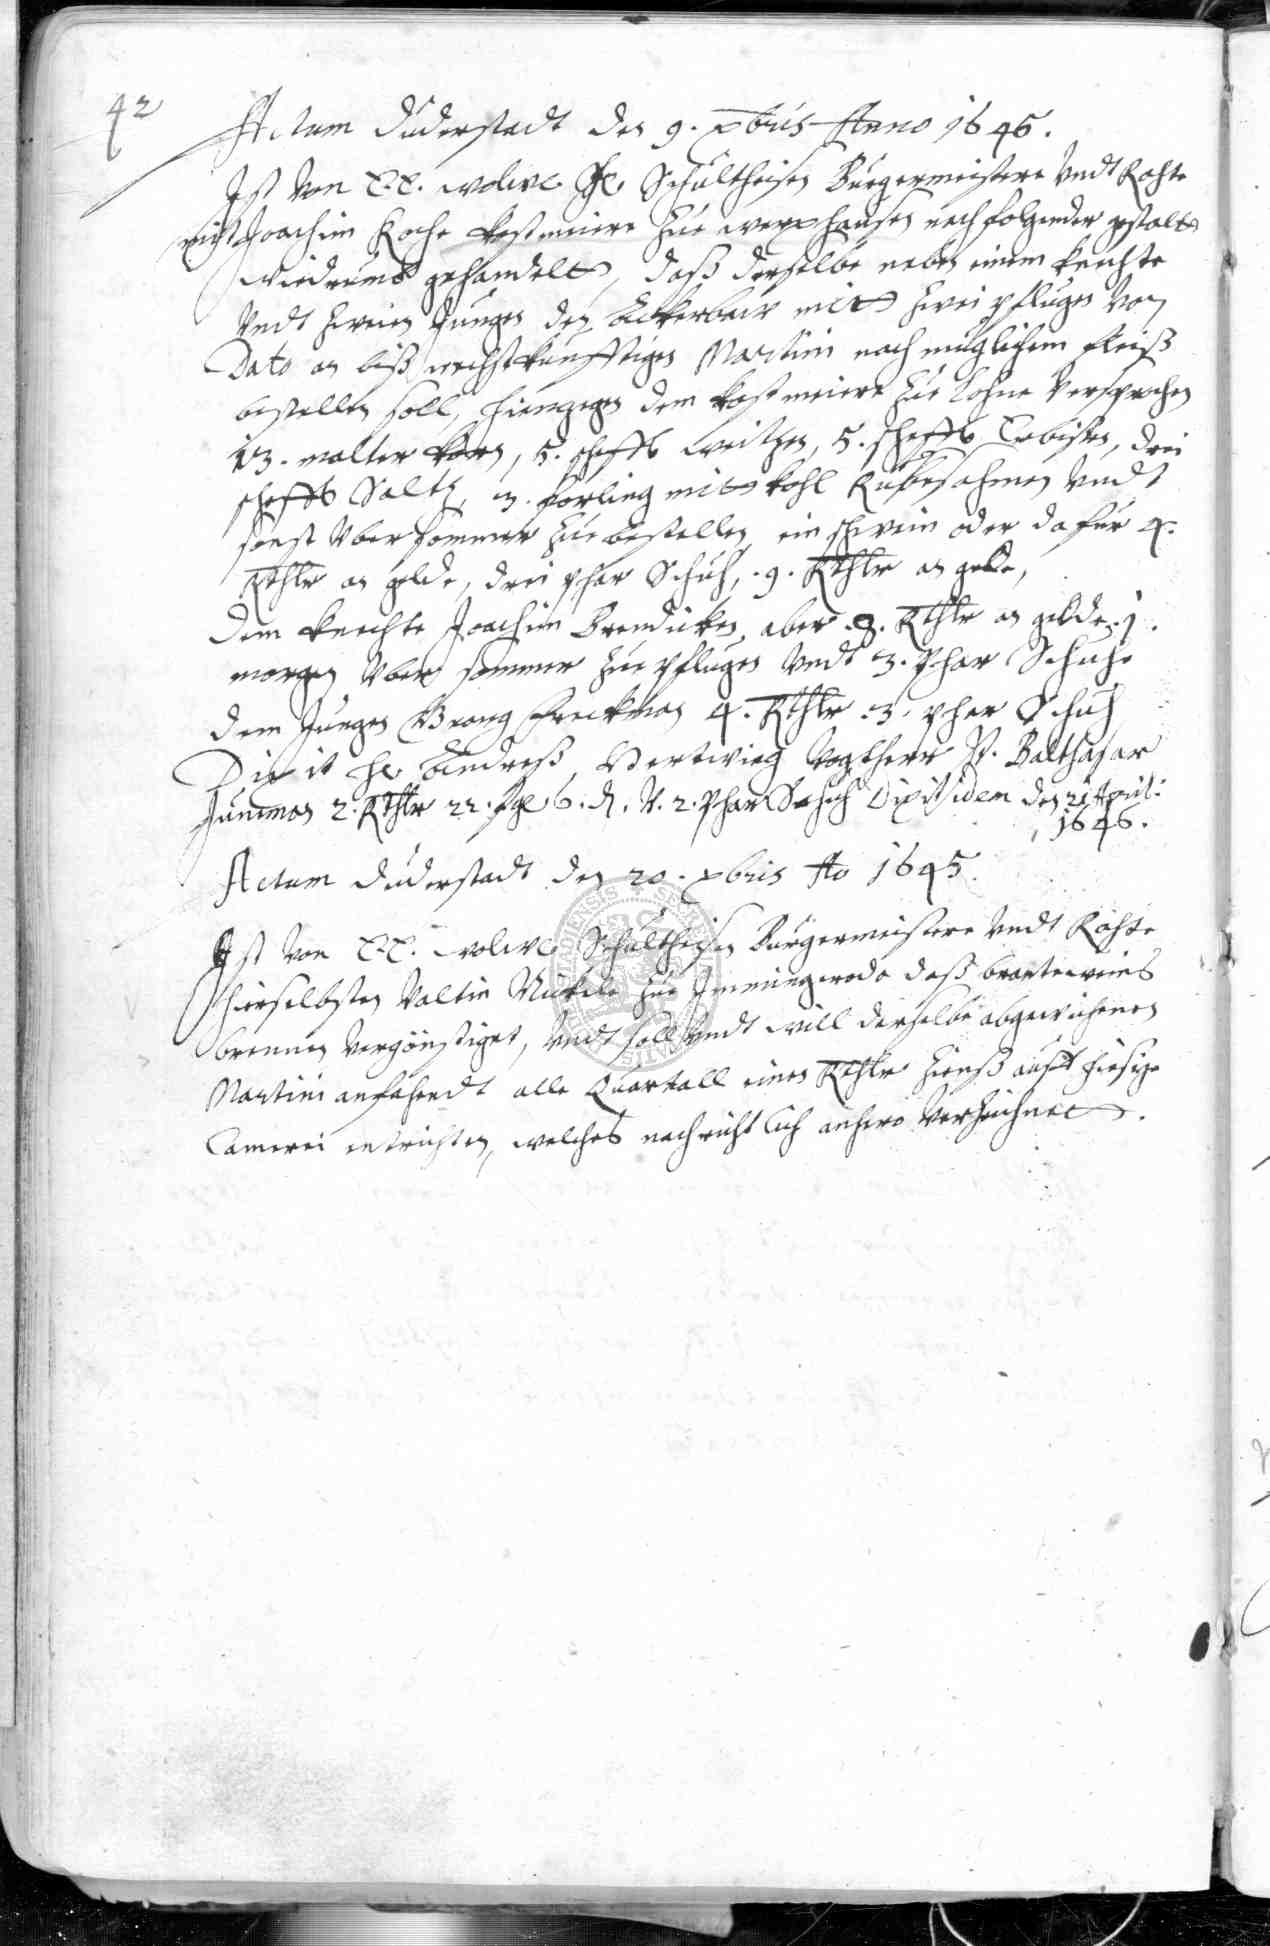 42
Actum Duderstadt den 9. xbris Anno 1645.
Ist von E.E. wolw. H. Schultheisen Bürgermeistere undt Rahte
mitt Joachim Koche kostmeiere zue werxhausen nachfolgender gestalt
wiedrumb gehandelt, daß derselbe neben einem knechte
undt zweien Jungen den Ackerbaw mit zwei pflugen von
Dato an biß nechstkünfftigen Martini nach müglichem fleiß
bestellen soll, hiengegen dem kostmeiere zue Lohne versprochen
13. malter korn, 5. scheffl weitzen, 5. scheffl Erbißen, drei
scheffl Saltz, 3. forling mit kohl Rübesahmen undt
sonst uber sommer zue bestellen, ein schwein oder dafür 4.
Rthlr an gelde, drei phar Schuh, 9. Rthlr an gelde,
Dem knechte Joachim Brendicken, aber 8. Rthlr an gelde 1.
morgen uber sommer zue pflugen undt 3. phar Schuhe
dem Jungen Freckman 4. Rthlr 3. phar Schuh
Dixit H. Andreß Hertwieg Vogtherr V. Balthasar
Junman 2. Rthlr 22. sgl 6. d. V. 2. phar Schuh Dixit idem den 21 April:
1646.
Actum Duderstadt den 20. xbris Ao 1645.
Ist von E.E. wolw. Schultheisen Bürgermeistere undt Rahte
hierselbsten Valtin Mückele zue Immingeroda daß branteweins
brennen vergönstiget, undt soll undt will derselbe abgewichenen
Martini anfahendt alle Quartall einen Rthlr zienß auff hiesige
Camerei entrichten, welches nachrichtlich anhero verzeichnet.